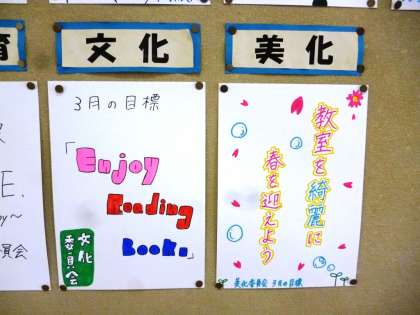 育
文化
美化
E.
員会
3月の目標
「Enjoy
Reading
Books」
文化
委員会
教室を綺麗に
春を迎えよう
美化委員会 3月の目標